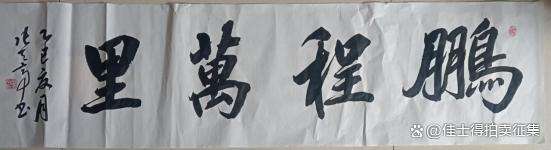 鵬程萬里
乙巳夏月
@佳士得拍卖征集